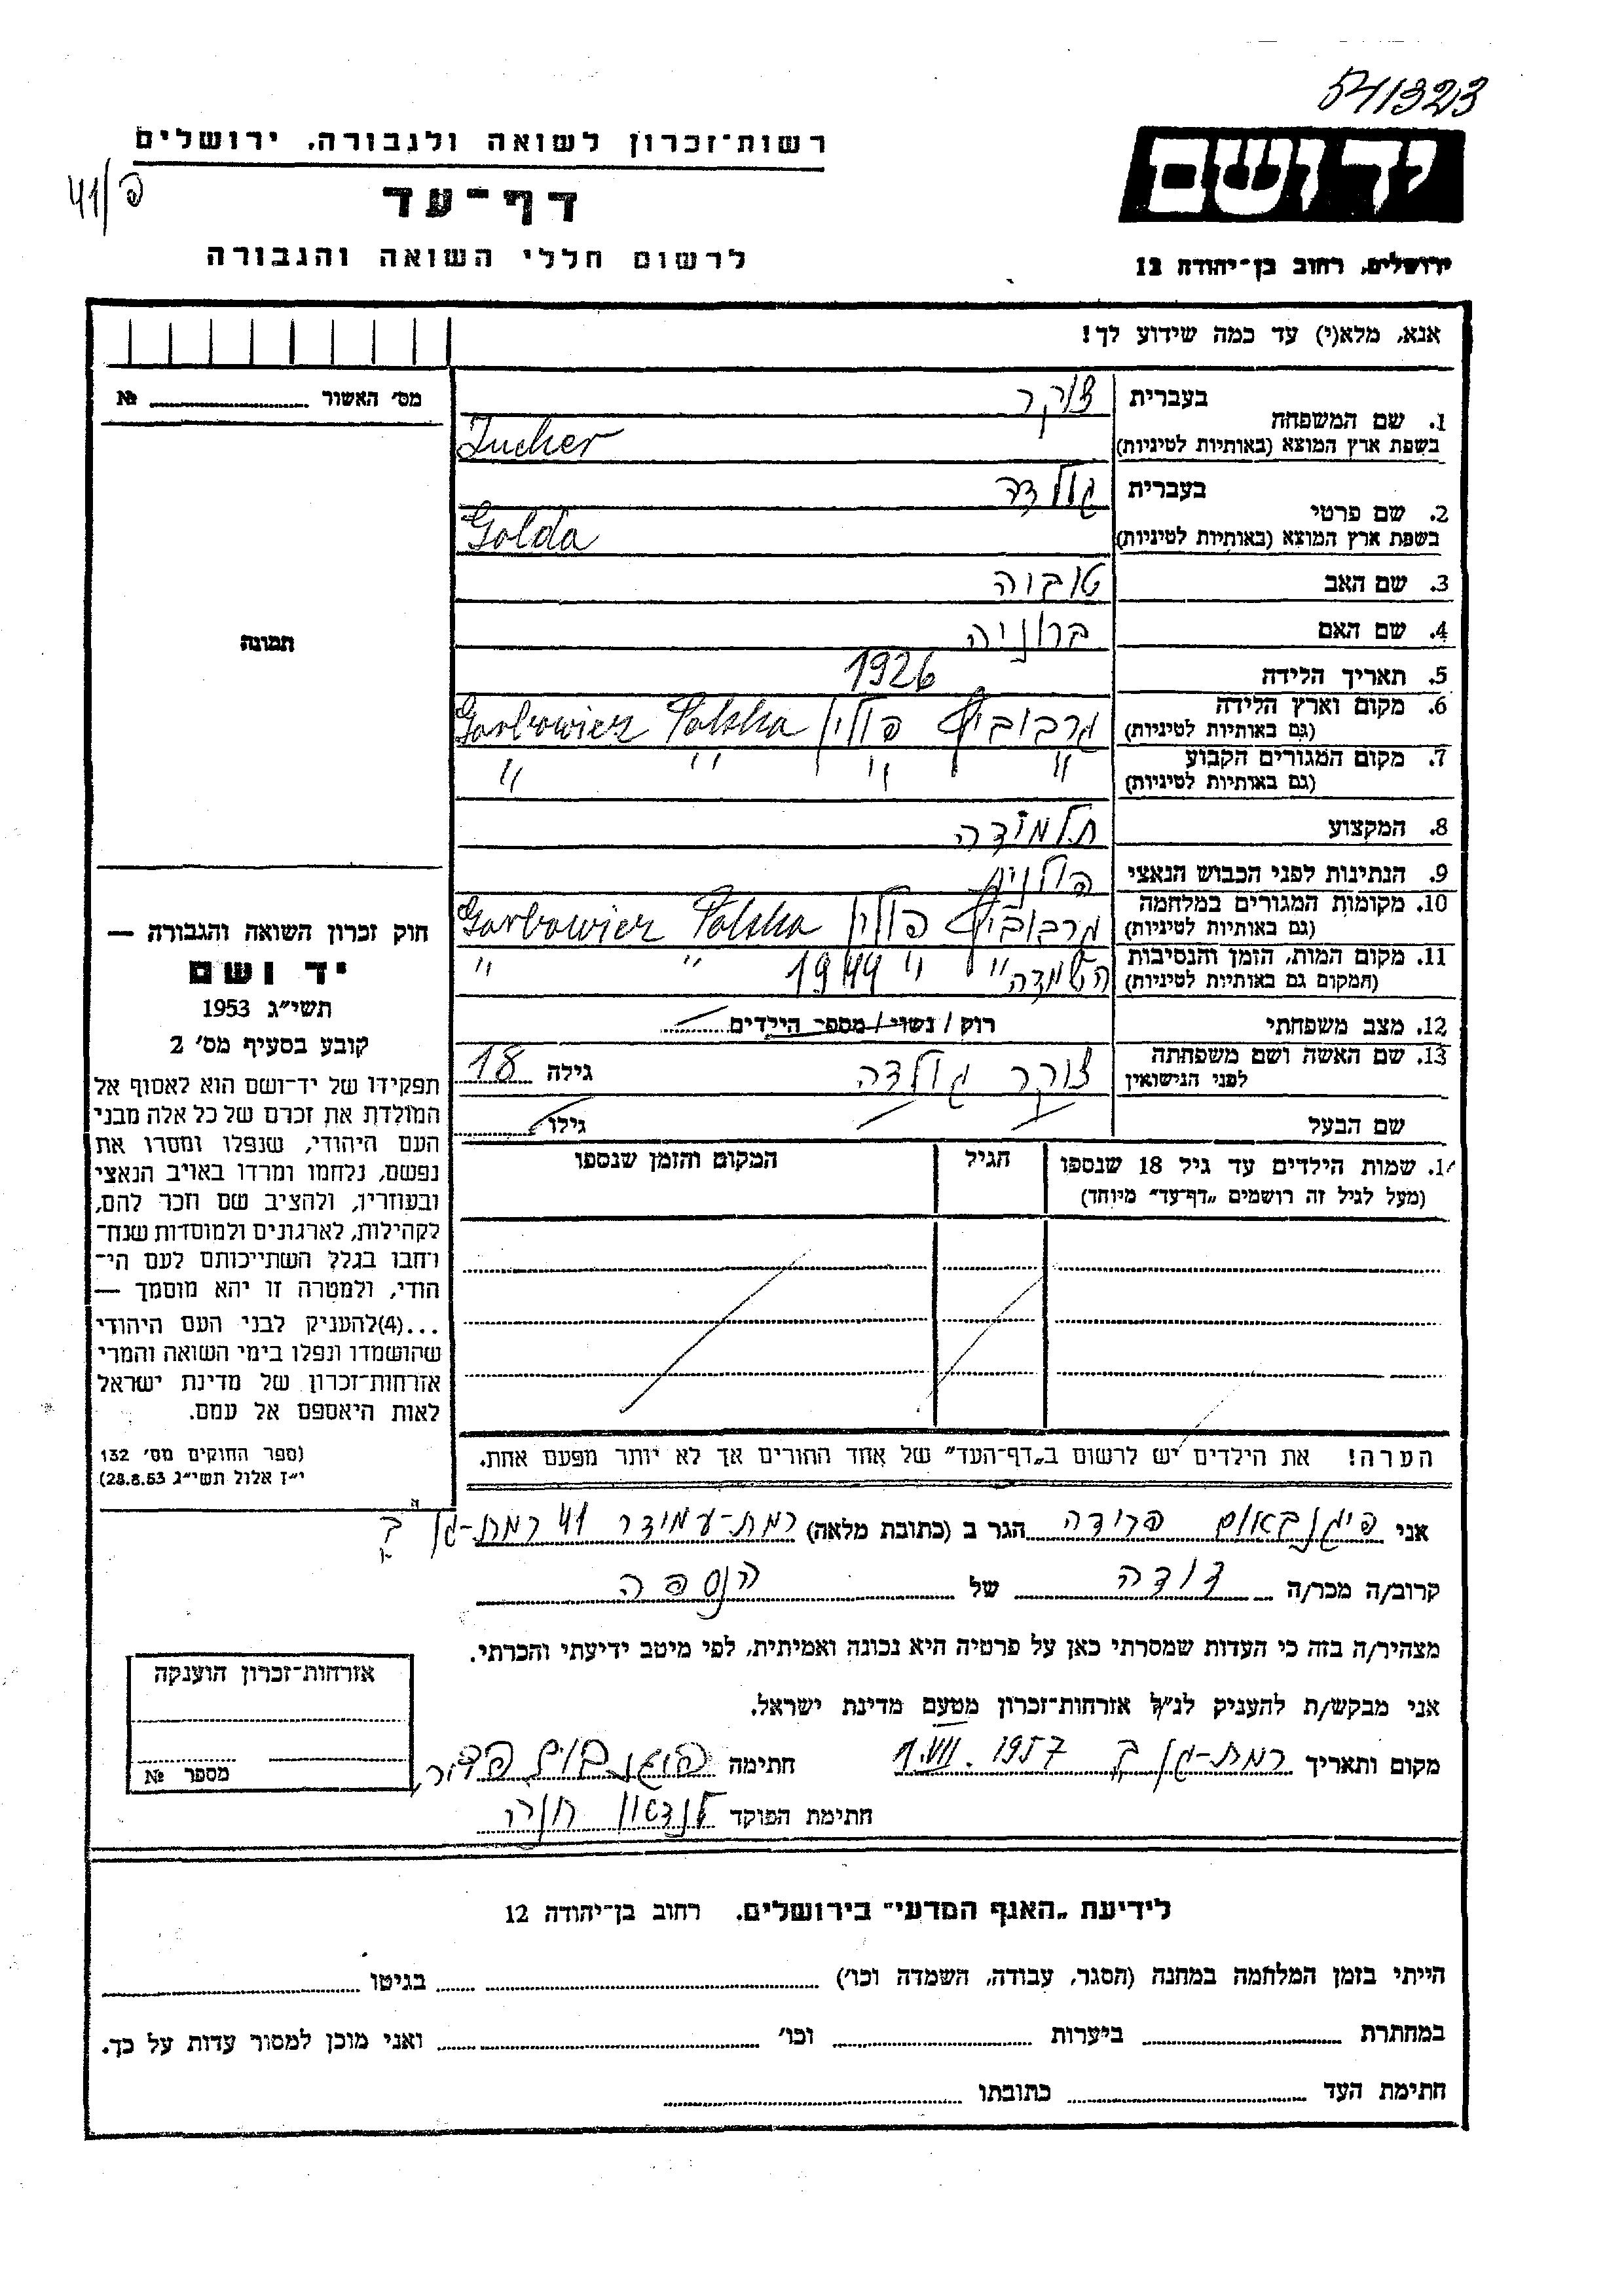 541323
רשות־זכרון לשואה ולגבורה, ירושלים
41/פ
דף־עד
לרשום חללי השואה והגבורה
יד ושם
ירושלים, רחוב בן־יהודה 12
אנא, מלא(י) עד כמה שידוע לך!
מס׳ האשור № 
1. שם המשפחה
בעברית צוקר
בשפת ארץ המוצא (באותיות לטיניות) Zucker
2. שם פרטי
בעברית גולדה
בשפת ארץ המוצא (באותיות לטיניות) Golda
3. שם האב טוביה
4. שם האם ברוניה
5. תאריך הלידה 1926
6. מקום וארץ הלידה
(גם באותיות לטיניות) פולין Polska
7. מקום המגורים הקבוע " " " "
(גם באותיות לטיניות)
8. המקצוע תלמידה
9. הנתינות לפני הכבוש הנאצי פולנית
10. מקומות המגורים במלחמה
(גם באותיות לטיניות) פולין Polska
11. מקום המות, הזמן והנסיבות
(המקום גם באותיות לטיניות) השמדה " " 1944 " "
12. מצב משפחתי רוק / נשוי / מספר הילדים
13. שם האשה ושם משפחתה
לפני הנישואין צוקר גולדה גילה 18
שם הבעל גילו
14. שמות הילדים עד גיל 18 שנספו הגיל המקום והזמן שנספו
(מעל לגיל זה רושמים „דף־עד״ מיוחד)
הערה! את הילדים יש לרשום ב„דף־העד״ של אחד ההורים אך לא יותר מפעם אחת.
תמונה
חוק זכרון השואה והגבורה —
יד ושם
תשי״ג 1953
קובע בסעיף מס׳ 2
תפקידו של יד־ושם הוא לאסוף אל
המולדת את זכרם של כל אלה מבני
העם היהודי, שנפלו ומסרו את
נפשם, נלחמו ומרדו באויב הנאצי
ובעוזריו, ולהציב שם וזכר להם,
לקהילות, לארגונים ולמוסדות שנח־
רבו בגלל השתייכותם לעם הי־
הודי, ולמטרה זו יהא מוסמך —
...(4)להעניק לבני העם היהודי
שהושמדו ונפלו בימי השואה והמרי
אזרחות־זכרון של מדינת ישראל
לאות היאספם אל עמם.
(ספר החוקים מס׳ 132
י״ז אלול תשי״ג 28.8.53)
אני פיגנבאום פרידה הגר ב (כתובת מלאה) רמת-עמידר 41 רמת-גן
קרוב/ה מכר/ה דודה של הנספה
מצהיר/ה בזה כי העדות שמסרתי כאן על פרטיה היא נכונה ואמיתית, לפי מיטב ידיעתי והכרתי.
אני מבקש/ת להעניק לנ״ל אזרחות־זכרון מטעם מדינת ישראל.
מקום ותאריך רמת-גן 1.VII.1957 חתימה
חתימת הפוקד חנה
אזרחות־זכרון הוענקה
מספר №
לידיעת „האגף המדעי״ בירושלים, רחוב בן־יהודה 12
הייתי בזמן המלחמה במחנה (הסגר, עבודה, השמדה וכו׳) בגיטו
במחתרת ביערות וכו׳ ואני מוכן למסור עדות על כך.
חתימת העד כתובתו